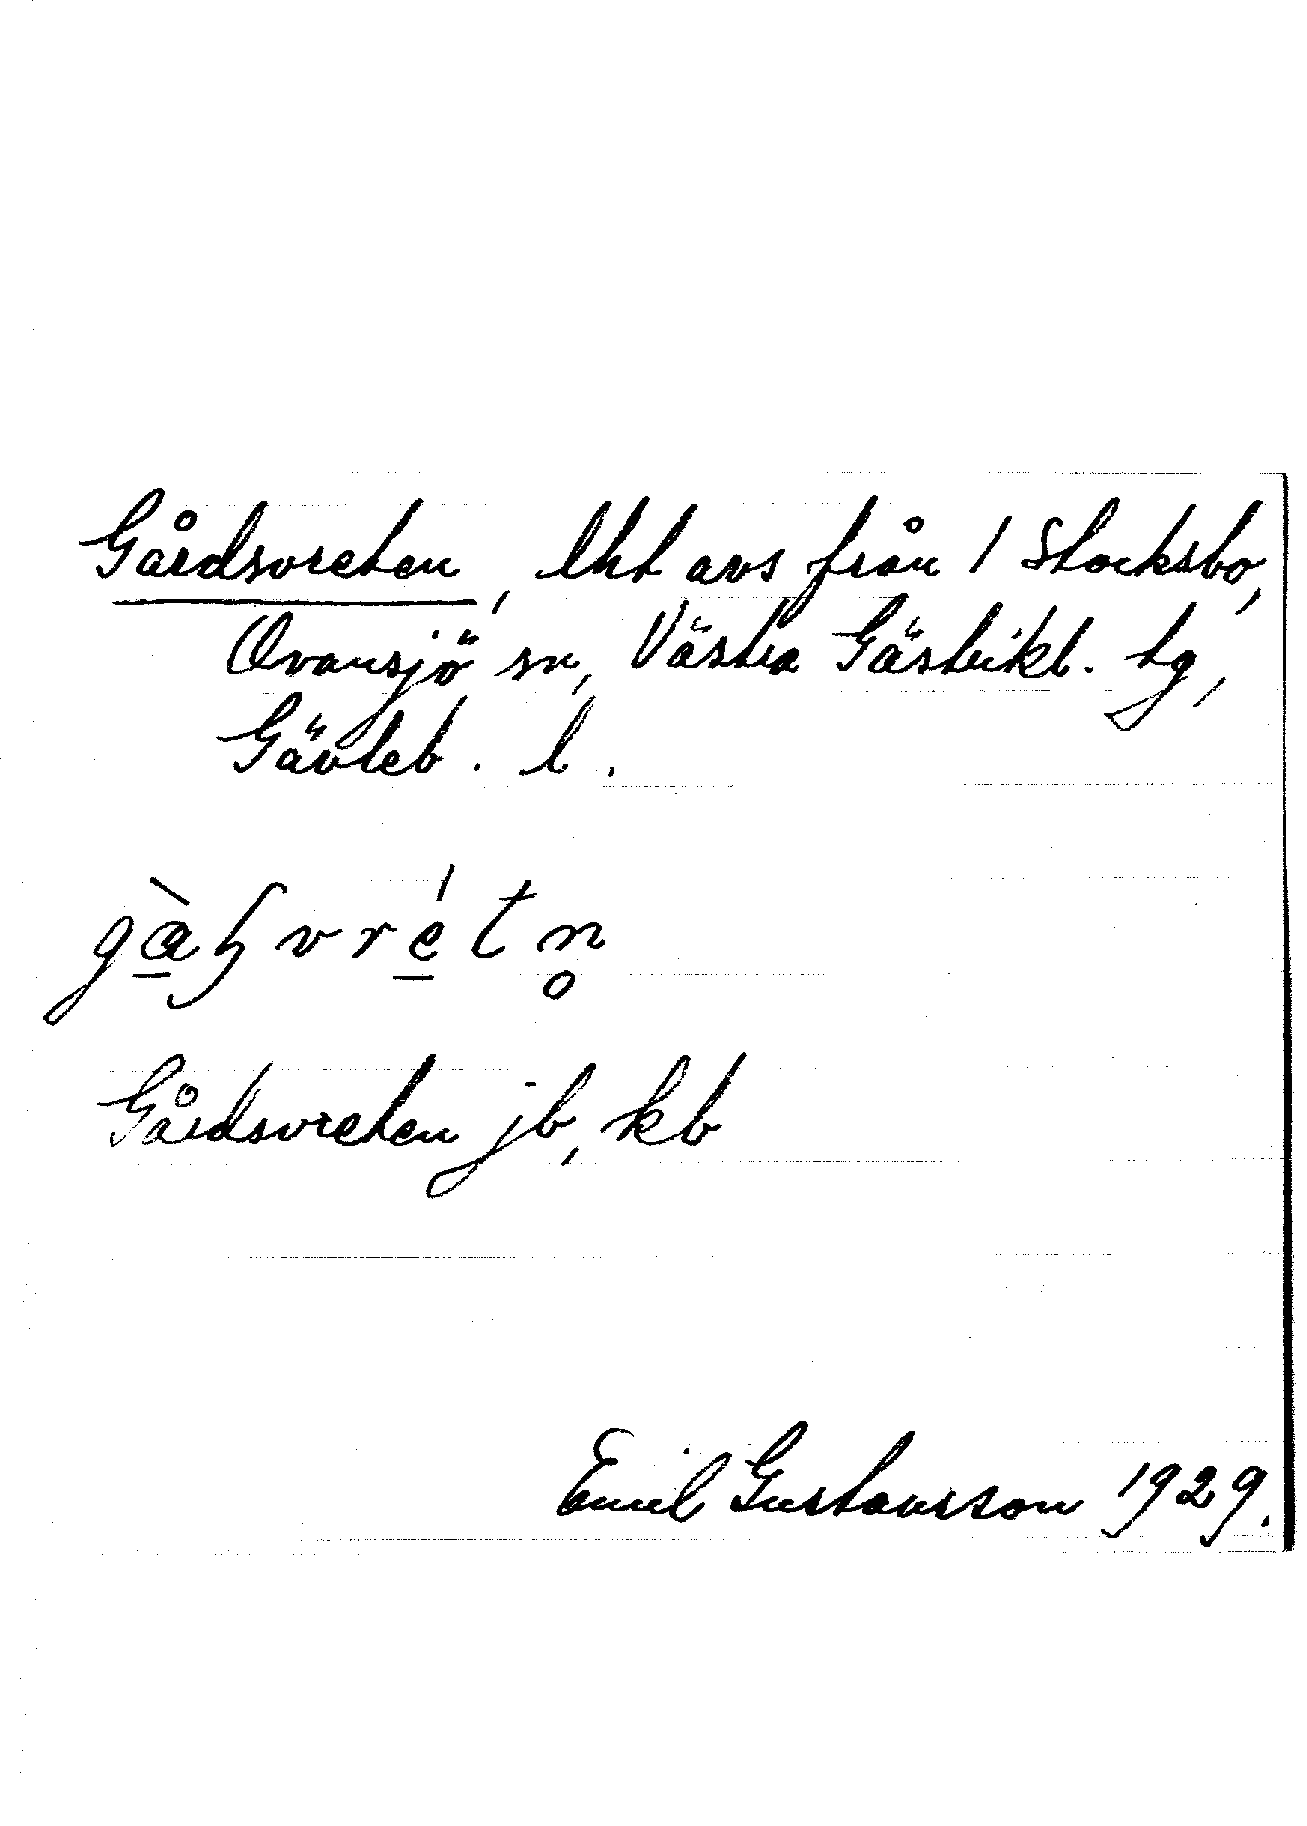 Gårdsvreten, lht avs från 1 Stocksbo,
Ovansjö sn, Västra Gästrikl. tg,
Gävleb. l.
Gårdsvreten jb, kb
Emil Gustavsson 1929.